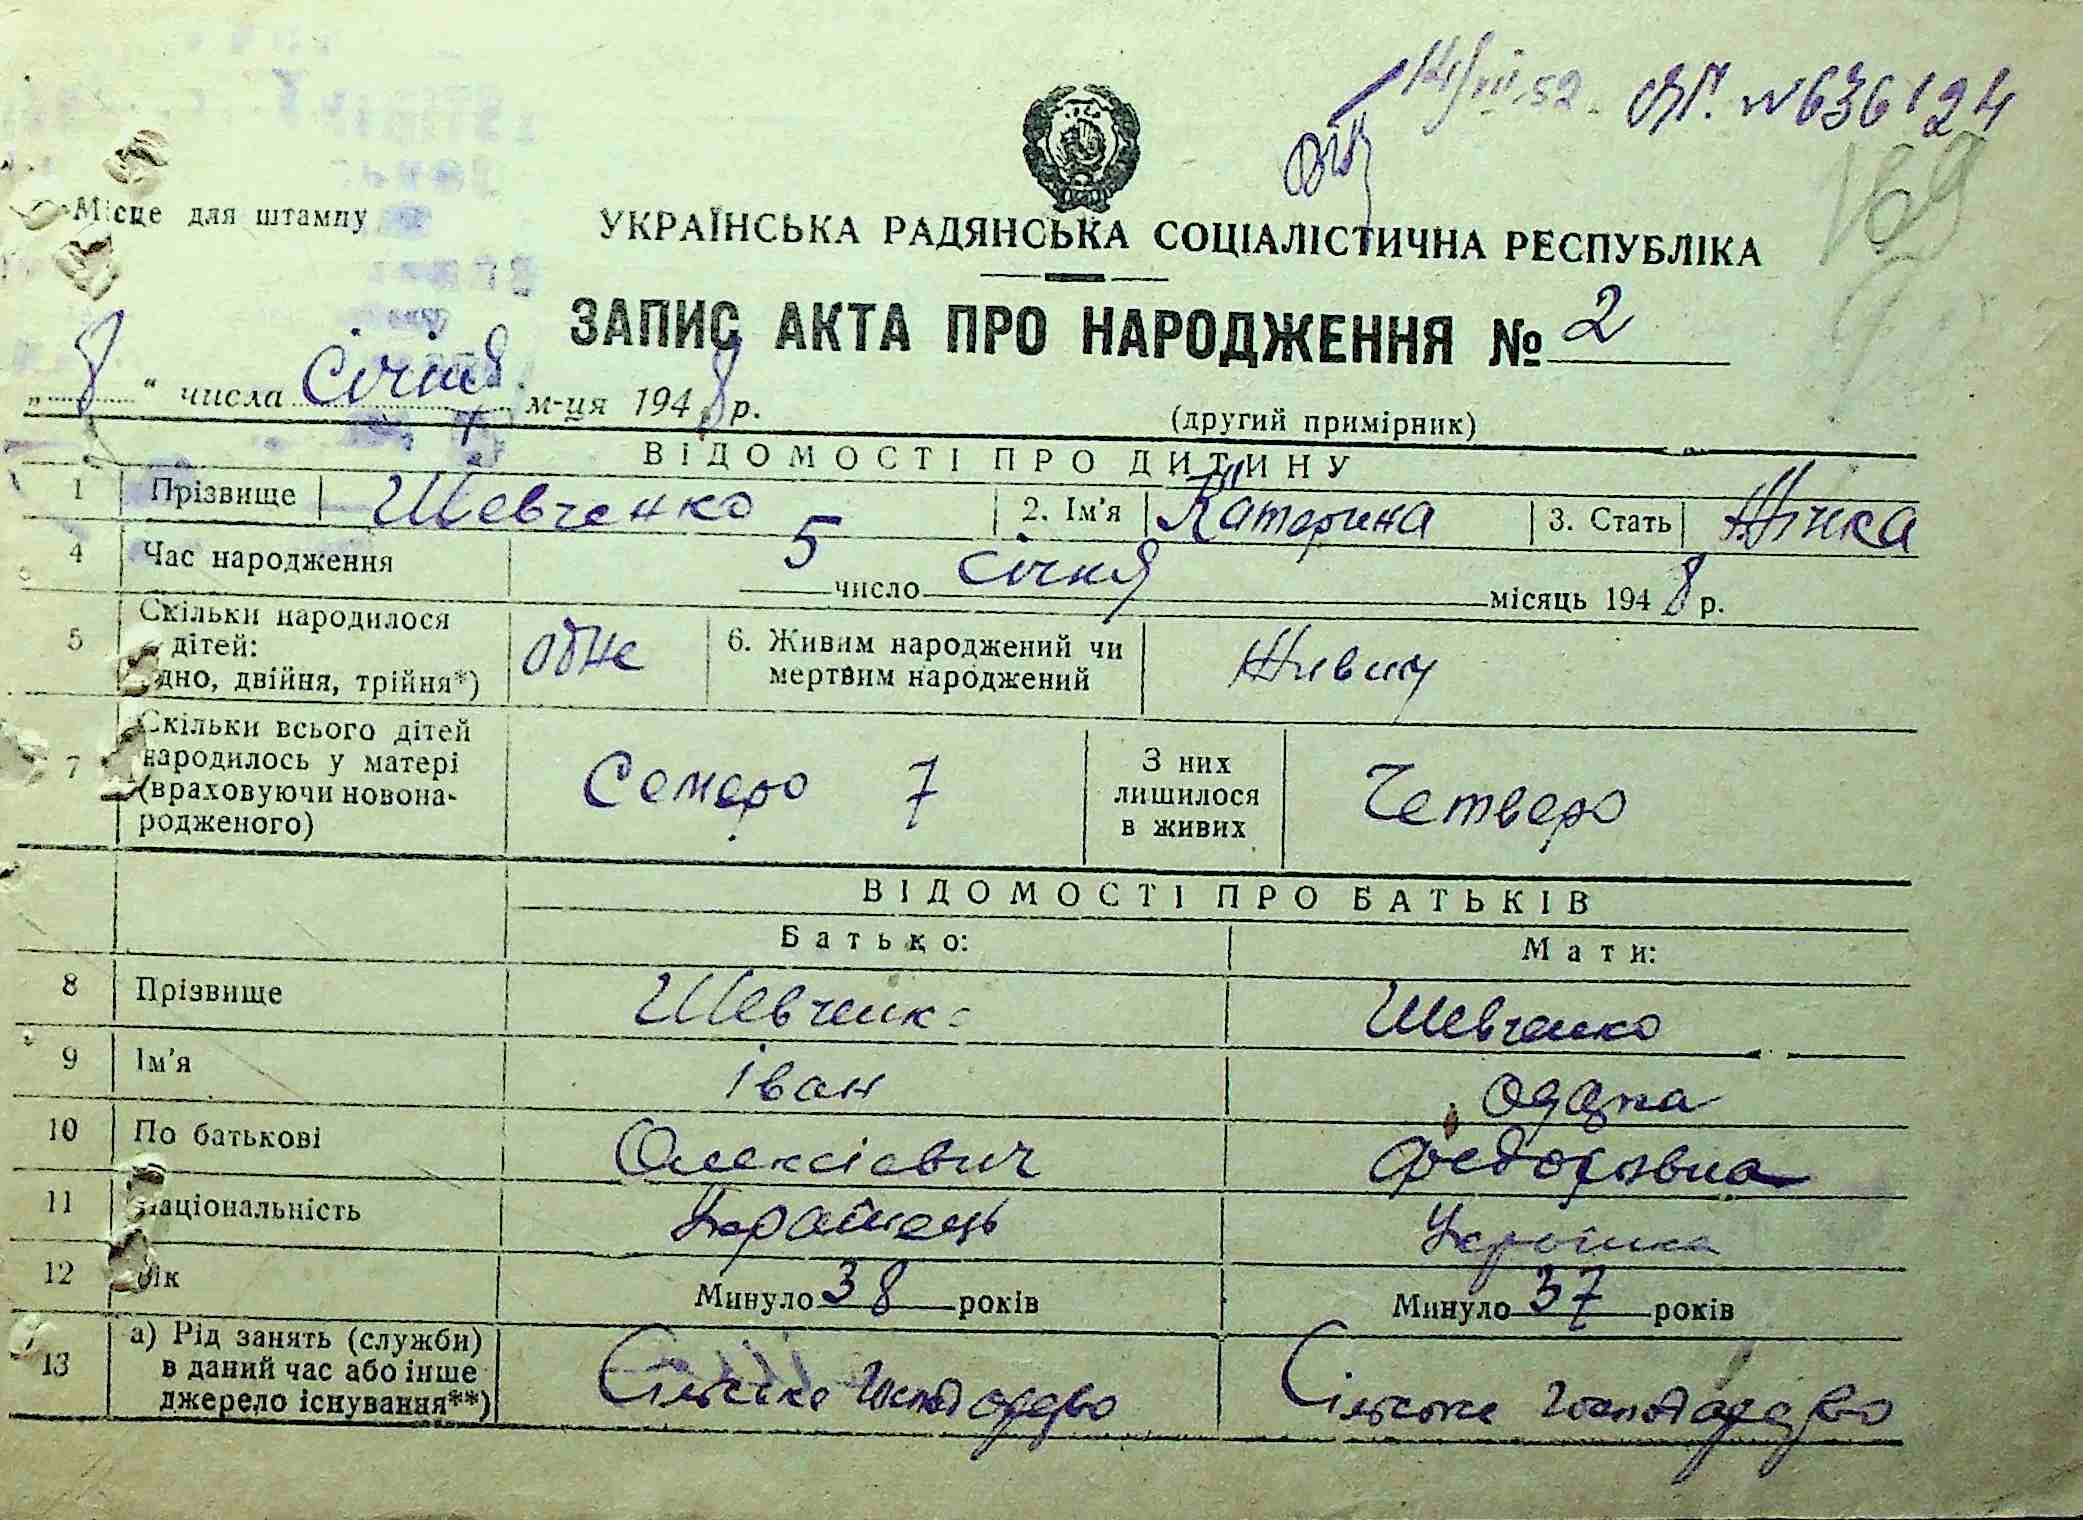 14/VII.52. ЯГ. №636124
169
Місце для штампу
УКРАЇНСЬКА РАДЯНСЬКА СОЦІАЛІСТИЧНА РЕСПУБЛІКА
ЗАПИС АКТА ПРО НАРОДЖЕННЯ № 2
„8“ числа січня м-ця 1948 р.
(другий примірник)
ВІДОМОСТІ ПРО ДИТИНУ
1 Прізвище Шевченко 2. Ім'я Катерина 3. Стать Жінка
4 Час народження 5 число січня місяць 1948 р.
5 Скільки народилося дітей: одно, двійня, трійня*) одне 6. Живим народжений чи мертвим народжений Живим
7 Скільки всього дітей народилось у матері (враховуючи новонародженого) Семеро 7 З них лишилося в живих Четверо
ВІДОМОСТІ ПРО БАТЬКІВ
Батько: Мати:
8 Прізвище Шевченко Шевченко
9 Ім'я Іван Одарка
10 По батькові Олексієвич Федоровна
11 Національність Українець Українка
12 Вік Минуло 38 років Минуло 37 років
13 а) Рід занять (служби) в даний час або інше джерело існування**) Сільське господарство Сільське господарство